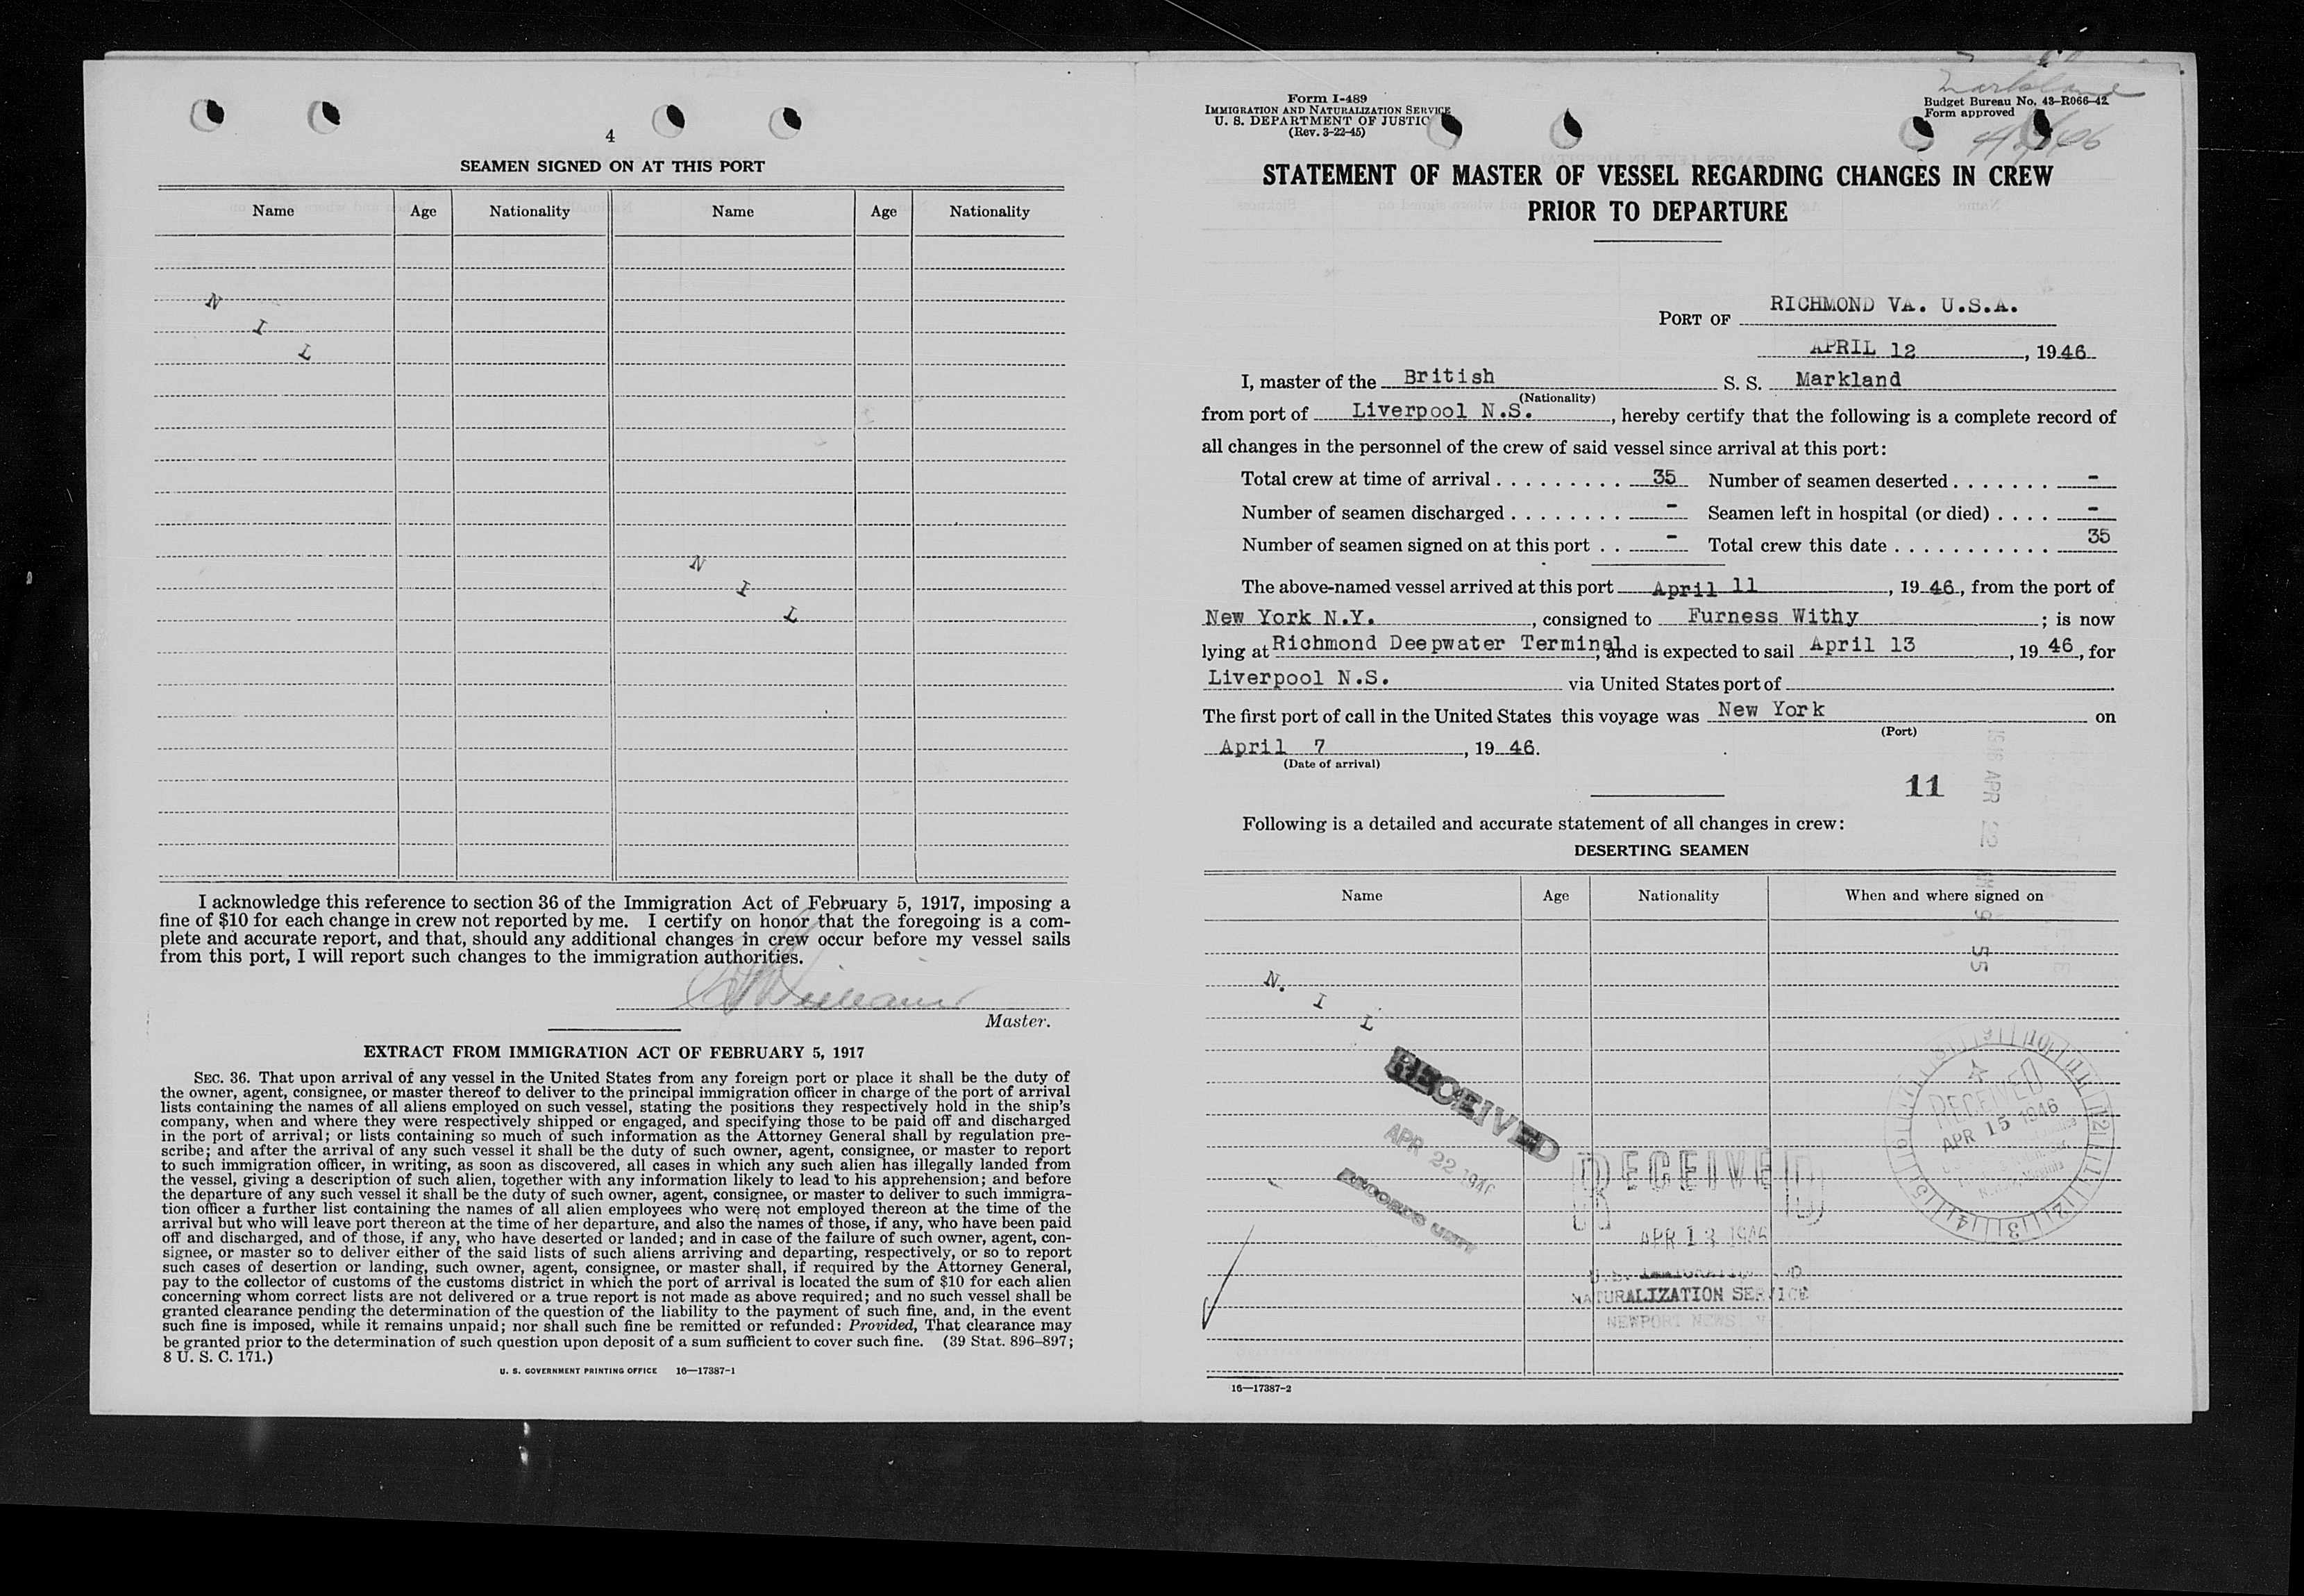 4
SEAMEN SIGNED ON AT THIS PORT
Name Age Nationality Name Age Nationality
N
I
L
N
I
L
I acknowledge this reference to section 36 of the Immigration Act of February 5, 1917, imposing a
fine of $10 for each change in crew not reported by me. I certify on honor that the foregoing is a com-
plete and accurate report, and that, should any additional changes in crew occur before my vessel sails
from this port, I will report such changes to the immigration authorities.
Master.
EXTRACT FROM IMMIGRATION ACT OF FEBRUARY 5, 1917
SEC. 36. That upon arrival of any vessel in the United States from any foreign port or place it shall be the duty of
the owner, agent, consignee, or master thereof to deliver to the principal immigration officer in charge of the port of arrival
lists containing the names of all aliens employed on such vessel, stating the positions they respectively hold in the ship's
company, when and where they were respectively shipped or engaged, and specifying those to be paid off and discharged
in the port of arrival; or lists containing so much of such information as the Attorney General shall by regulation pre-
scribe; and after the arrival of any such vessel it shall be the duty of such owner, agent, consignee, or master to report
to such immigration officer, in writing, as soon as discovered, all cases in which any such alien has illegally landed from
the vessel, giving a description of such alien, together with any information likely to lead to his apprehension; and before
the departure of any such vessel it shall be the duty of such owner, agent, consignee, or master to deliver to such immigra-
tion officer a further list containing the names of all alien employees who were not employed thereon at the time of the
arrival but who will leave port thereon at the time of her departure, and also the names of those, if any, who have been paid
off and discharged, and of those, if any, who have deserted or landed; and in case of the failure of such owner, agent, con-
signee, or master so to deliver either of the said lists of such aliens arriving and departing, respectively, or so to report
such cases of desertion or landing, such owner, agent, consignee, or master shall, if required by the Attorney General,
pay to the collector of customs of the customs district in which the port of arrival is located the sum of $10 for each alien
concerning whom correct lists are not delivered or a true report is not made as above required; and no such vessel shall be
granted clearance pending the determination of the question of the liability to the payment of such fine, and, in the event
such fine is imposed, while it remains unpaid; nor shall such fine be remitted or refunded: Provided, That clearance may
be granted prior to the determination of such question upon deposit of a sum sufficient to cover such fine. (39 Stat. 896–897;
8 U. S. C. 171.)
U. S. GOVERNMENT PRINTING OFFICE 16—17387-1
Markland
Form I-489
IMMIGRATION AND NATURALIZATION SERVICE
U. S. DEPARTMENT OF JUSTIC
(Rev. 3-22-45)
Budget Bureau No. 43–R066–42
Form approved
STATEMENT OF MASTER OF VESSEL REGARDING CHANGES IN CREW
PRIOR TO DEPARTURE
PORT OF RICHMOND VA. U.S.A.
APRIL 12, 1946
I, master of the British S. S. Markland
(Nationality)
from port of Liverpool N.S., hereby certify that the following is a complete record of
all changes in the personnel of the crew of said vessel since arrival at this port:
Total crew at time of arrival . . . . . . . . . 35 Number of seamen deserted . . . . . . . -
Number of seamen discharged . . . . . . . . - Seamen left in hospital (or died) . . . . -
Number of seamen signed on at this port . . - Total crew this date . . . . . . . . . . . 35
The above-named vessel arrived at this port April 11, 1946, from the port of
New York N.Y., consigned to Furness Withy; is now
lying at Richmond Deepwater Terminal, and is expected to sail April 13, 1946, for
Liverpool N.S. via United States port of
The first port of call in the United States this voyage was New York on
(Port)
April 7, 1946.
(Date of arrival)
11
Following is a detailed and accurate statement of all changes in crew:
DESERTING SEAMEN
Name Age Nationality When and where signed on
APR 22
9 55
N.
I
L
RECEIVED
APR 22 1946
RECORDS UNIT
RECEIVED
APR 13 1946
NATURALIZATION SERVICE
NEWPORT NEWS
RECEIVED
APR 15 1946
16—17387-2